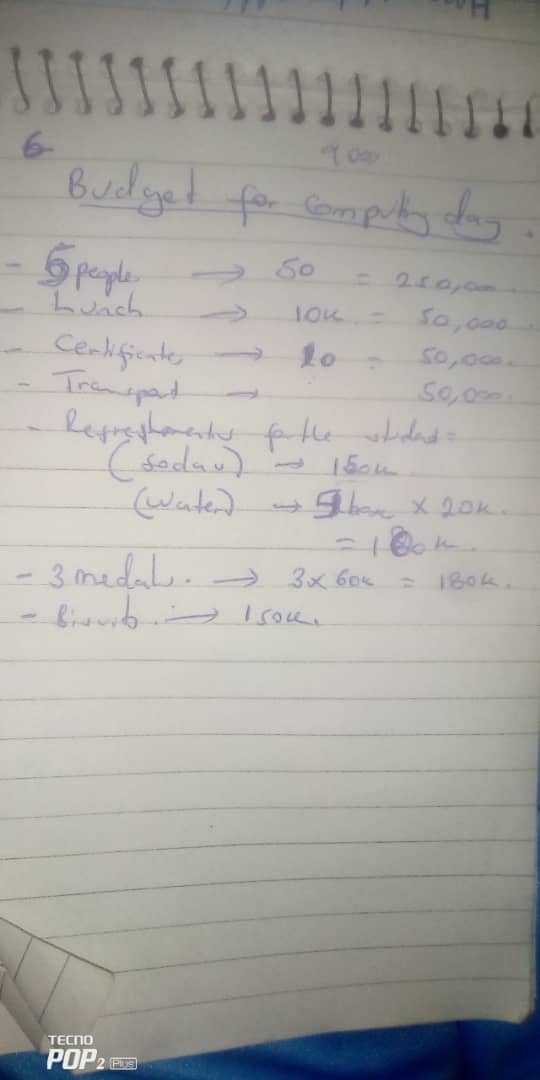 6
9000
Budget for computing day.
- 5 people → 50 = 250,000.
- Lunch → 10k = 50,000
- Certificates → 10 = 50,000.
- Transport → 50,000.
- Refreshments for the student =
(Sodas) → 150k
(Water) → 5 box × 20k.
= 100k.
- 3 medals. → 3 × 60k = 180k.
- Biscuits. → 150k.
TECNO
POP 2 Plus